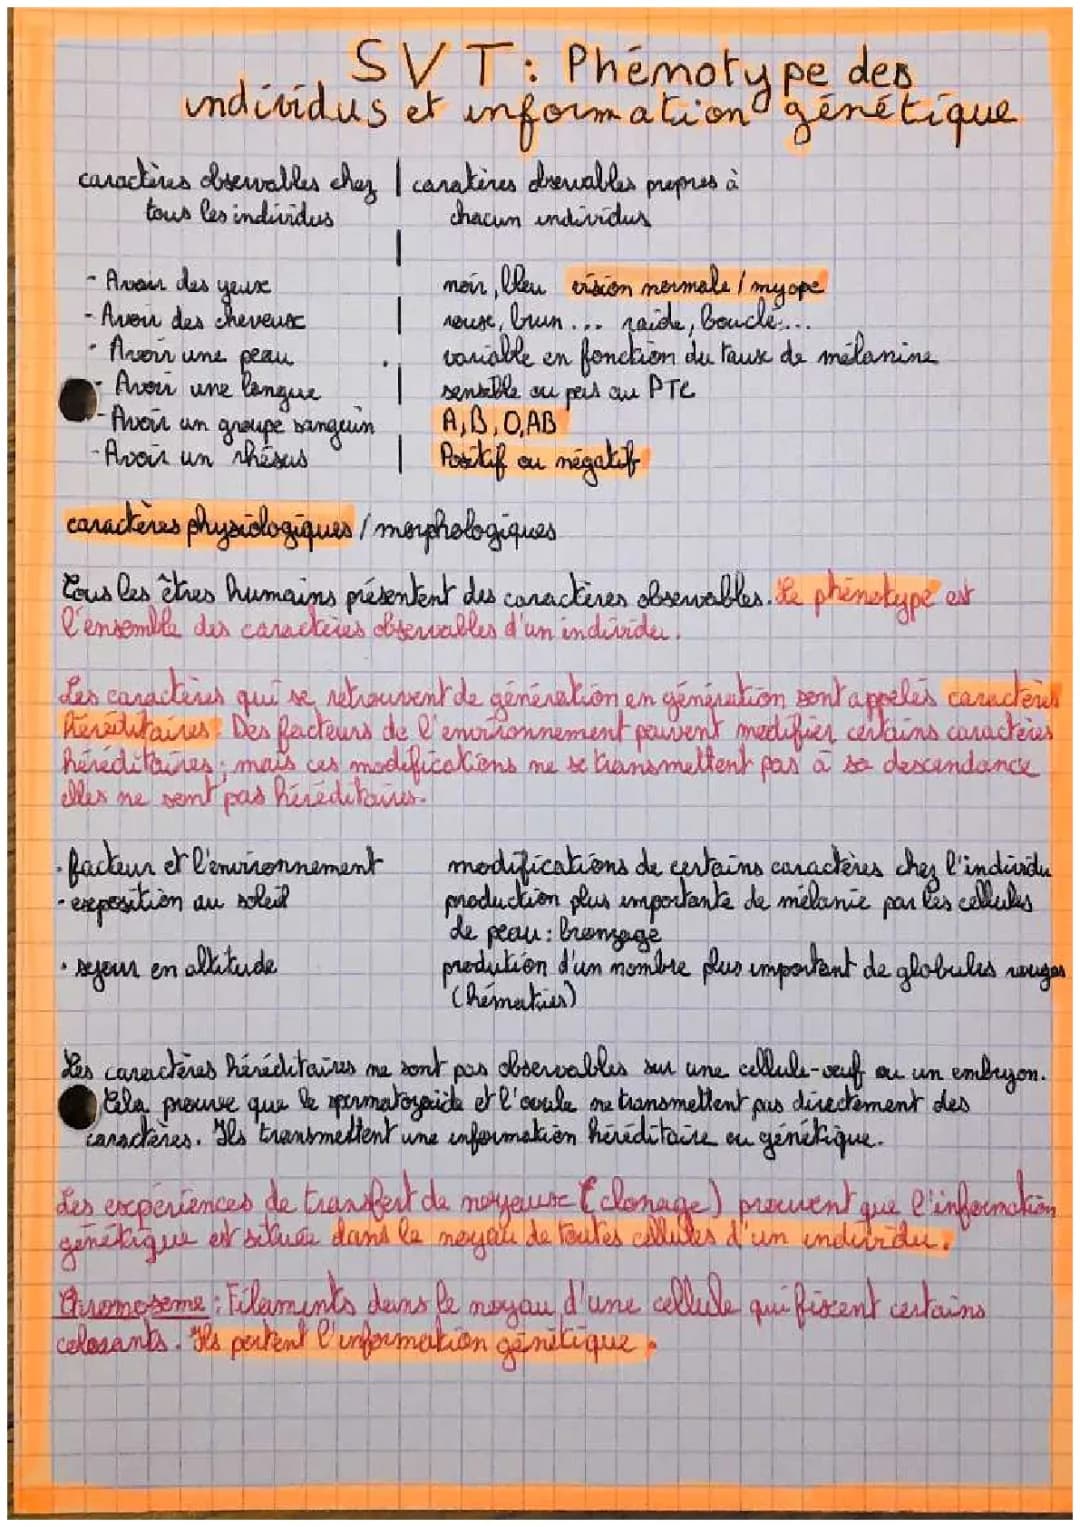 SVT : Phénotype des
individus et information génétique
caractères observables chez | caratères obsrvables propres à
tous les individus chacun individus
- Avoir des yeux noir, bleu vision normale / myope
- Avoir des cheveux roux, brun ... raide, bouclé...
- Avoir une peau variable en fonction du taux de mélanine
- Avoir une langue sensible ou pas au PTC
- Avoir un groupe sanguin A, B, O, AB
- Avoir un rhésus Positif ou négatif
caractères physiologiques / morphologiques
Tous les êtres humains présentent des caractères observables. Le phénotype est
l'ensemble des caractères observables d'un individu.
Les caractères qui se retrouvent de génération en génération sont appelés caractères
héréditaires. Des facteurs de l'environnement peuvent modifier certains caractères
héréditaires ; mais ces modifications ne se transmettent pas à sa descendance
elles ne sont pas héréditaires.
- facteur et l'environnement modifications de certains caractères chez l'individu
- exposition au soleil production plus importante de mélanie par les cellules
de peau : bronzage
• sejour en altitude prodution d'un nombre plus important de globules rouges
(hématies)
Les caractères héréditaires ne sont pas observables sur une cellule-oeuf ou un embryon.
Cela prouve que le spermatozoïde et l'ovule ne transmettent pas directement des
caractères. Ils transmettent une information héréditaire ou génétique.
Les expériences de transfert de noyaux (clonage) prouvent que l'information
génétique est située dans le noyau de toutes cellules d'un individu.
Chromosome : Filaments dans le noyau d'une cellule qui fixent certains
colorants. Ils portent l'information génétique.